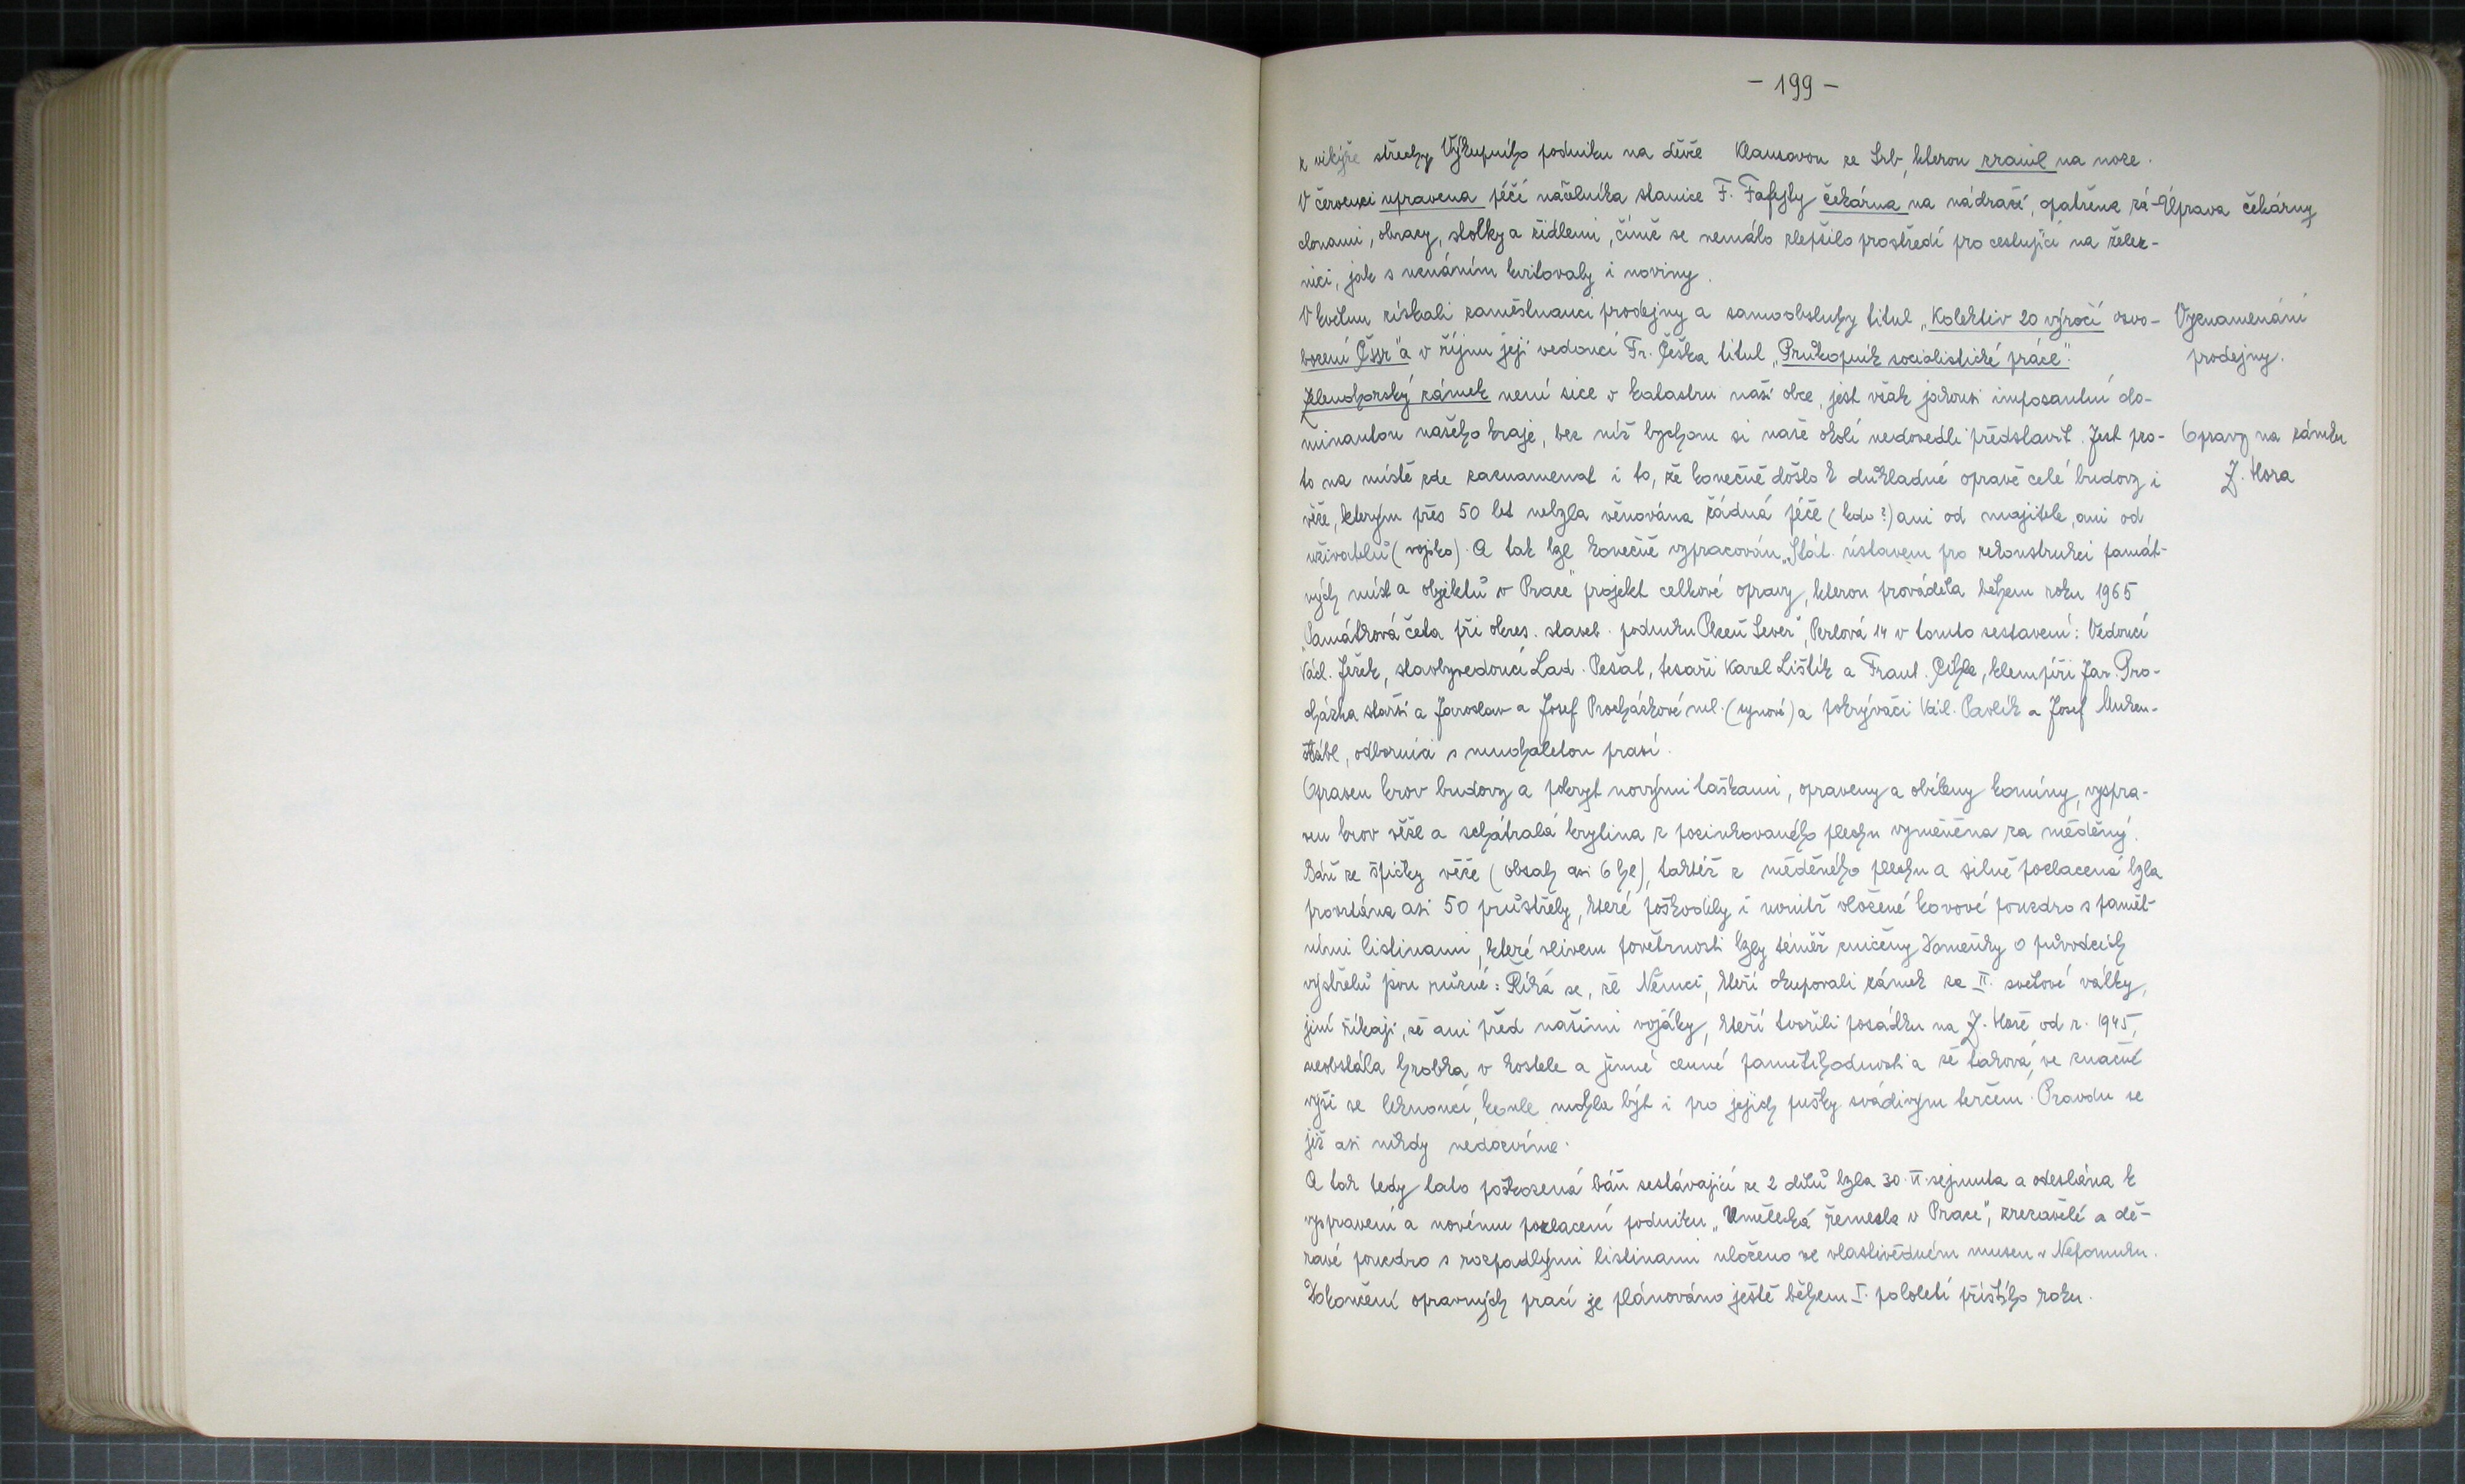 - 199 -
z vikýře střechy Výkupního podniku na děvče Klausovou ze Srb, kterou zranil na noze.
V červenci upravena péčí náčelníka stanice F. Fafejty čekárna na nádraží, opatřena zá-
Úprava čekárny
clonami, obrazy, stolky a židlemi, čímž se nemálo zlepšilo prostředí pro cestující na želez-
nici, jak s uznáním kvitovaly i noviny.
V květnu získali zaměstnanci prodejny a samoobsluhy titul „Kolektiv 20 výročí osvo-
Vyznamenání
bození ČSSR" a v říjnu její vedoucí Fr. Češka titul „Průkopník socialistické práce".
prodejny.
Zelenohorský zámek není sice v katastru naší obce, jest však jakousi imposantní do-
minantou našeho kraje, bez níž bychom si naše okolí nedovedli představit. Jest pro-
Opravy na zámku
to na místě zde zaznamenat i to, že konečně došlo k důkladné opravě celé budovy i
Z. Hora
věže, kterým přes 50 let nebyla věnována žádná péče (kdo?) ani od majitele, ani od
uživatelů (vojsko). A tak byl konečně vypracován „Stát. ústavem pro rekonstrukci památ-
ných míst a objektů v Praze" projekt celkové opravy, kterou prováděla během roku 1965
„Památková četa při okres. staveb. podniku Plzeň Sever", Perlová 14 v tomto sestavení: Vedoucí
Václ. Ježek, stavbyvedoucí Lad. Pešat, tesaři Karel Lištík a Frant. Cihla, klempíři Jar. Pro-
cházka starší a Jaroslav a Josef Procházkové ml. (synové) a pokrývači Václ. Pavlík a Josef Muken-
štábl, odborníci s mnohaletou praxí.
Opraven krov budovy a pokryt novými taškami, opraveny a obíleny komíny, vyspra-
ven krov věže a schátralá krytina z pozinkovaného plechu vyměněna za měděný.
Báň ze špičky věže (obsah asi 6 hl), taktéž z měděného plechu a silně pozlacená byla
provrtána asi 50 průstřely, které poškodily i uvnitř vložené kovové pouzdro s pamět-
ními listinami, které vlivem povětrnosti byly téměř zničeny. Domněnky o původcích
výstřelů jsou různé: Říká se, že Němci, kteří okupovali zámek za II. světové války,
jiní říkají, že ani před našimi vojáky, kteří tvořili posádku na Z. Hoře od r. 1945,
neobstála hrobka v kostele a jiné cenné pamětihodnosti a že taková, ve značné
výši se lesknoucí koule mohla být i pro jejich pušky svádivým terčem. Pravdu se
již asi nikdy nedozvíme.
A tak tedy tato poškozená báň sestávající ze 2 dílů byla 30. VI. sejmuta a odeslána k
vyspravení a novému pozlacení podniku „Umělecká řemesla v Praze", zrezavělé a dě-
ravé pouzdro s rozpadlými listinami uloženo ve vlastivědném museu v Nepomuku.
Dokončení opravných prací je plánováno ještě během I. pololetí příštího roku.